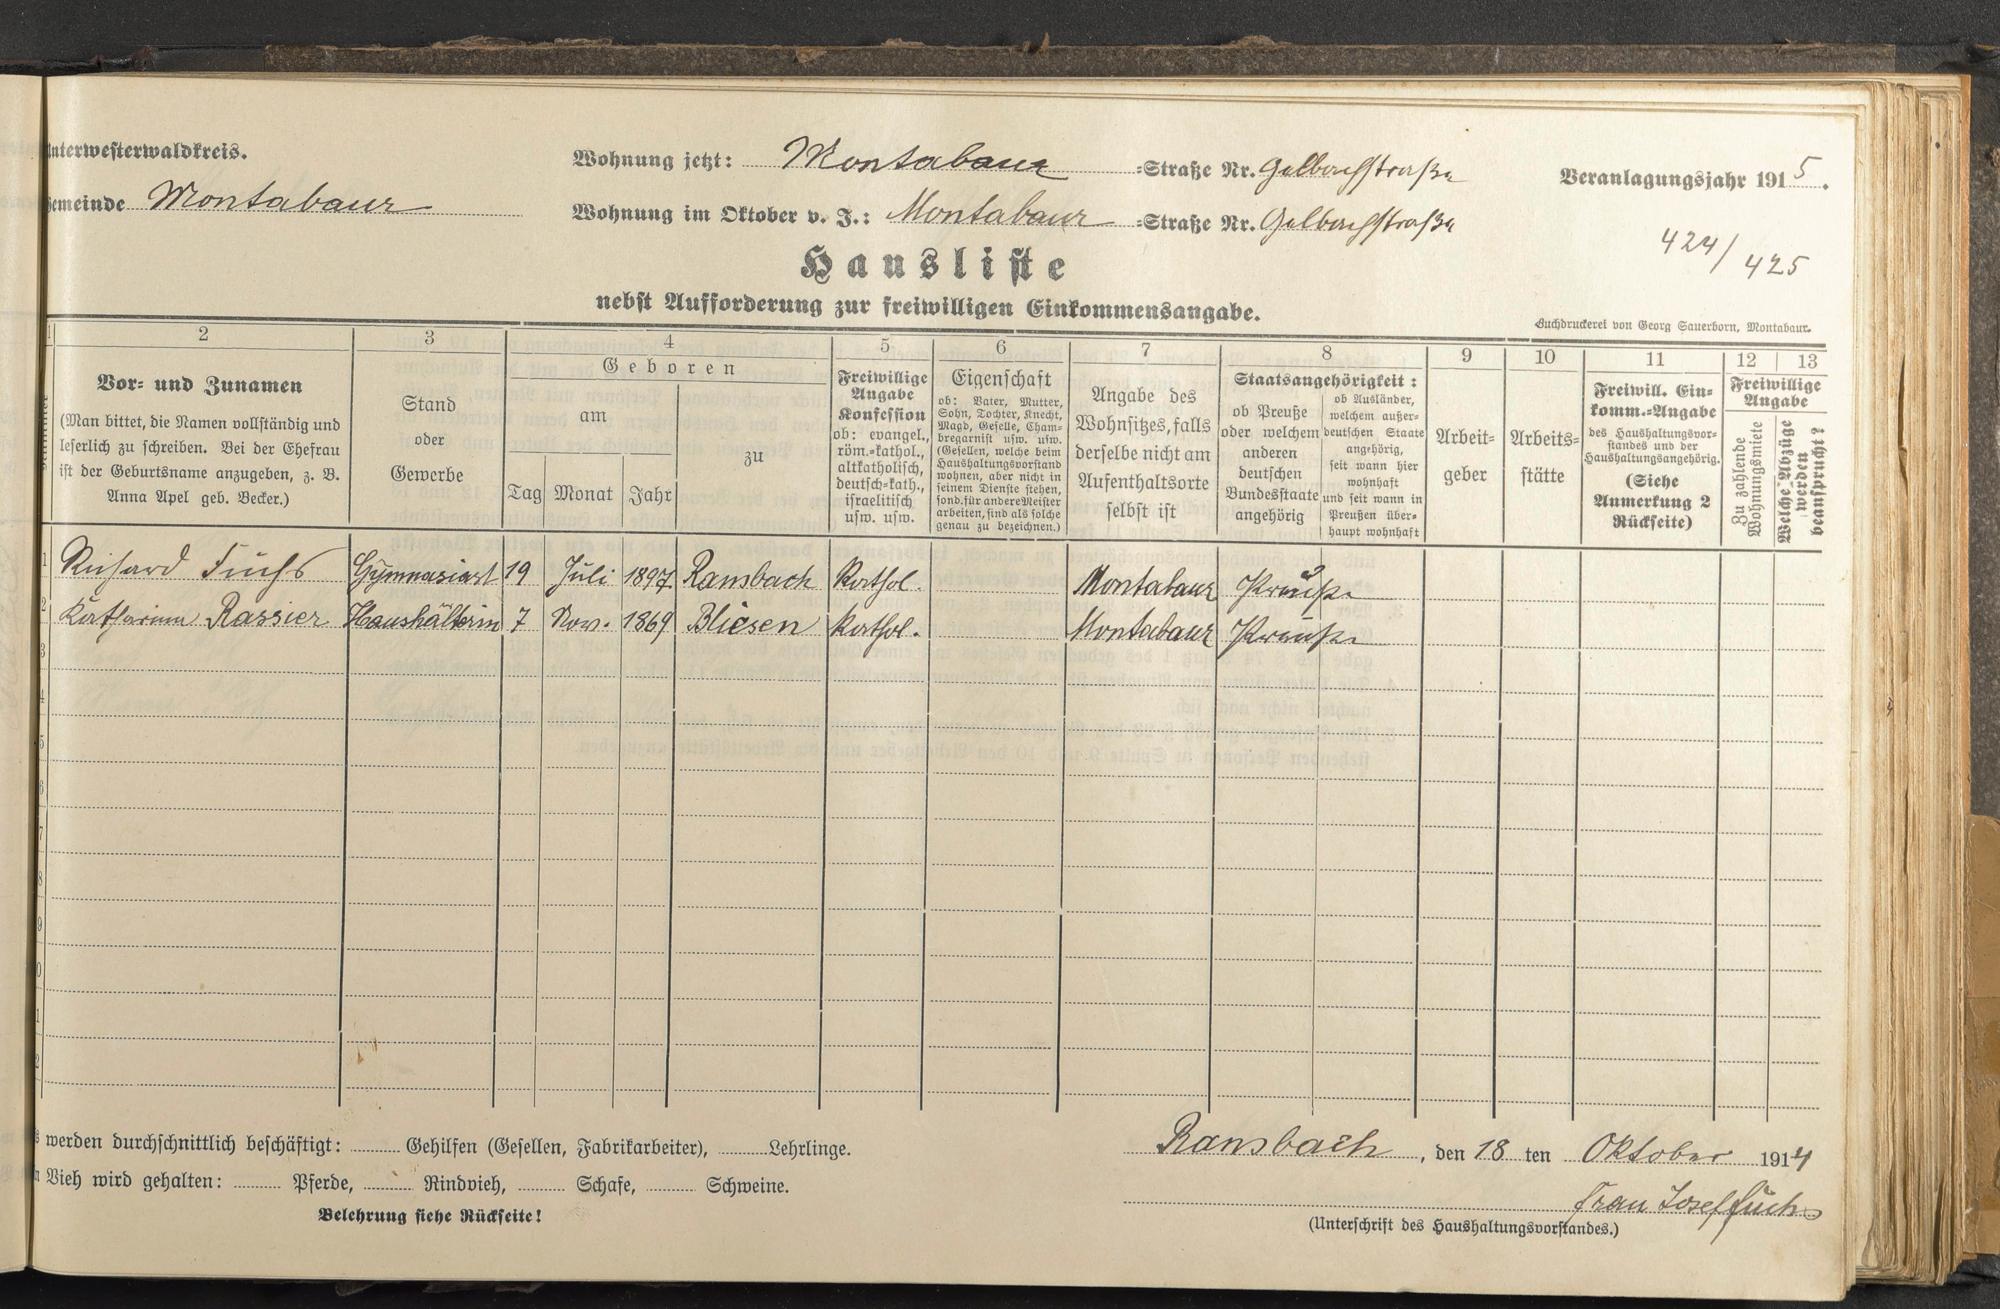 Unterwesterwaldkreis.
Gemeinde Montabaur
Wohnung jetzt: Montabaur =Straße Nr. Gelbachstraße
Wohnung im Oktober v. J.: Montabaur =Straße Nr. Gelbachstraße
Veranlagungsjahr 1915.
424/425
Hausliste
nebst Aufforderung zur freiwilligen Einkommensangabe.
Buchdruckerei von Georg Sauerborn, Montabaur.
1 2 3 4 5 6 7 8 9 10 11 12 13
Vor= und Zunamen
(Man bittet, die Namen vollständig und
leserlich zu schreiben. Bei der Ehefrau
ist der Geburtsname anzugeben, z. B.
Anna Apel geb. Becker.)
Stand
oder
Gewerbe
Geboren
am
Tag Monat Jahr
zu
Freiwillige
Angabe
Konfession
ob: evangel.,
röm.=kathol.,
altkatholisch,
deutsch=kath.,
israelitisch
usw. usw.
Eigenschaft
ob: Vater, Mutter,
Sohn, Tochter, Knecht,
Magd, Geselle, Cham=
bregarnist usw. usw.
(Gesellen, welche beim
Haushaltungsvorstand
wohnen, aber nicht in
seinem Dienste stehen,
sond. für andere Meister
arbeiten, sind als solche
genau zu bezeichnen.)
Angabe des
Wohnsitzes, falls
derselbe nicht am
Aufenthaltsorte
selbst ist
Staatsangehörigkeit:
ob Preuße
oder welchem
anderen
deutschen
Bundesstaate
angehörig
ob Ausländer,
welchem außer=
deutschen Staate
angehörig,
seit wann hier
wohnhaft
und seit wann in
Preußen über=
haupt wohnhaft
Arbeit=
geber
Arbeits=
stätte
Freiwill. Ein=
komm.=Angabe
des Haushaltungsvor=
standes und der
Haushaltungsangehörig.
(Siehe
Anmerkung 2
Rückseite)
Freiwillige
Angabe
Zu zahlende
Wohnungsmiete
Welche Abzüge
werden
beansprucht?
1 Richard Fuchs Gymnasiast 19 Juli 1897 Ransbach Kathol. Montabaur Preuße
2 Katharina Rassier Haushälterin 7 Nov. 1869 Bliesen Kathol. Montabaur Preuße
3
4
5
6
7
8
9
0
1
2
werden durchschnittlich beschäftigt: Gehilfen (Gesellen, Fabrikarbeiter), Lehrlinge.
Vieh wird gehalten: Pferde, Rindvieh, Schafe, Schweine.
Belehrung siehe Rückseite!
Ransbach, den 18 ten Oktober 1914
Frau Josef Fuchs
(Unterschrift des Haushaltungsvorstandes.)